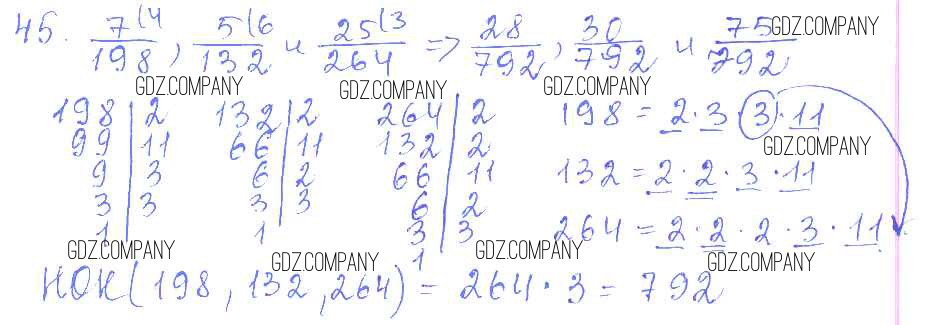 45. 7(4/198, 5(6/132 и 25(3/264 => 28/792, 30/792 и 75/792
GDZ.COMPANY
GDZ.COMPANY GDZ.COMPANY GDZ.COMPANY
198 | 2 132 | 2 264 | 2 198 = 2 · 3 · 3 · 11
99 | 11 66 | 11 132 | 2
GDZ.COMPANY
9 | 3 6 | 2 66 | 11 132 = 2 · 2 · 3 · 11
3 | 3 3 | 3 6 | 2
1 1 3 | 3 264 = 2 · 2 · 2 · 3 · 11
1
GDZ.COMPANY GDZ.COMPANY GDZ.COMPANY GDZ.COMPANY
НОК(198, 132, 264) = 264 · 3 = 792